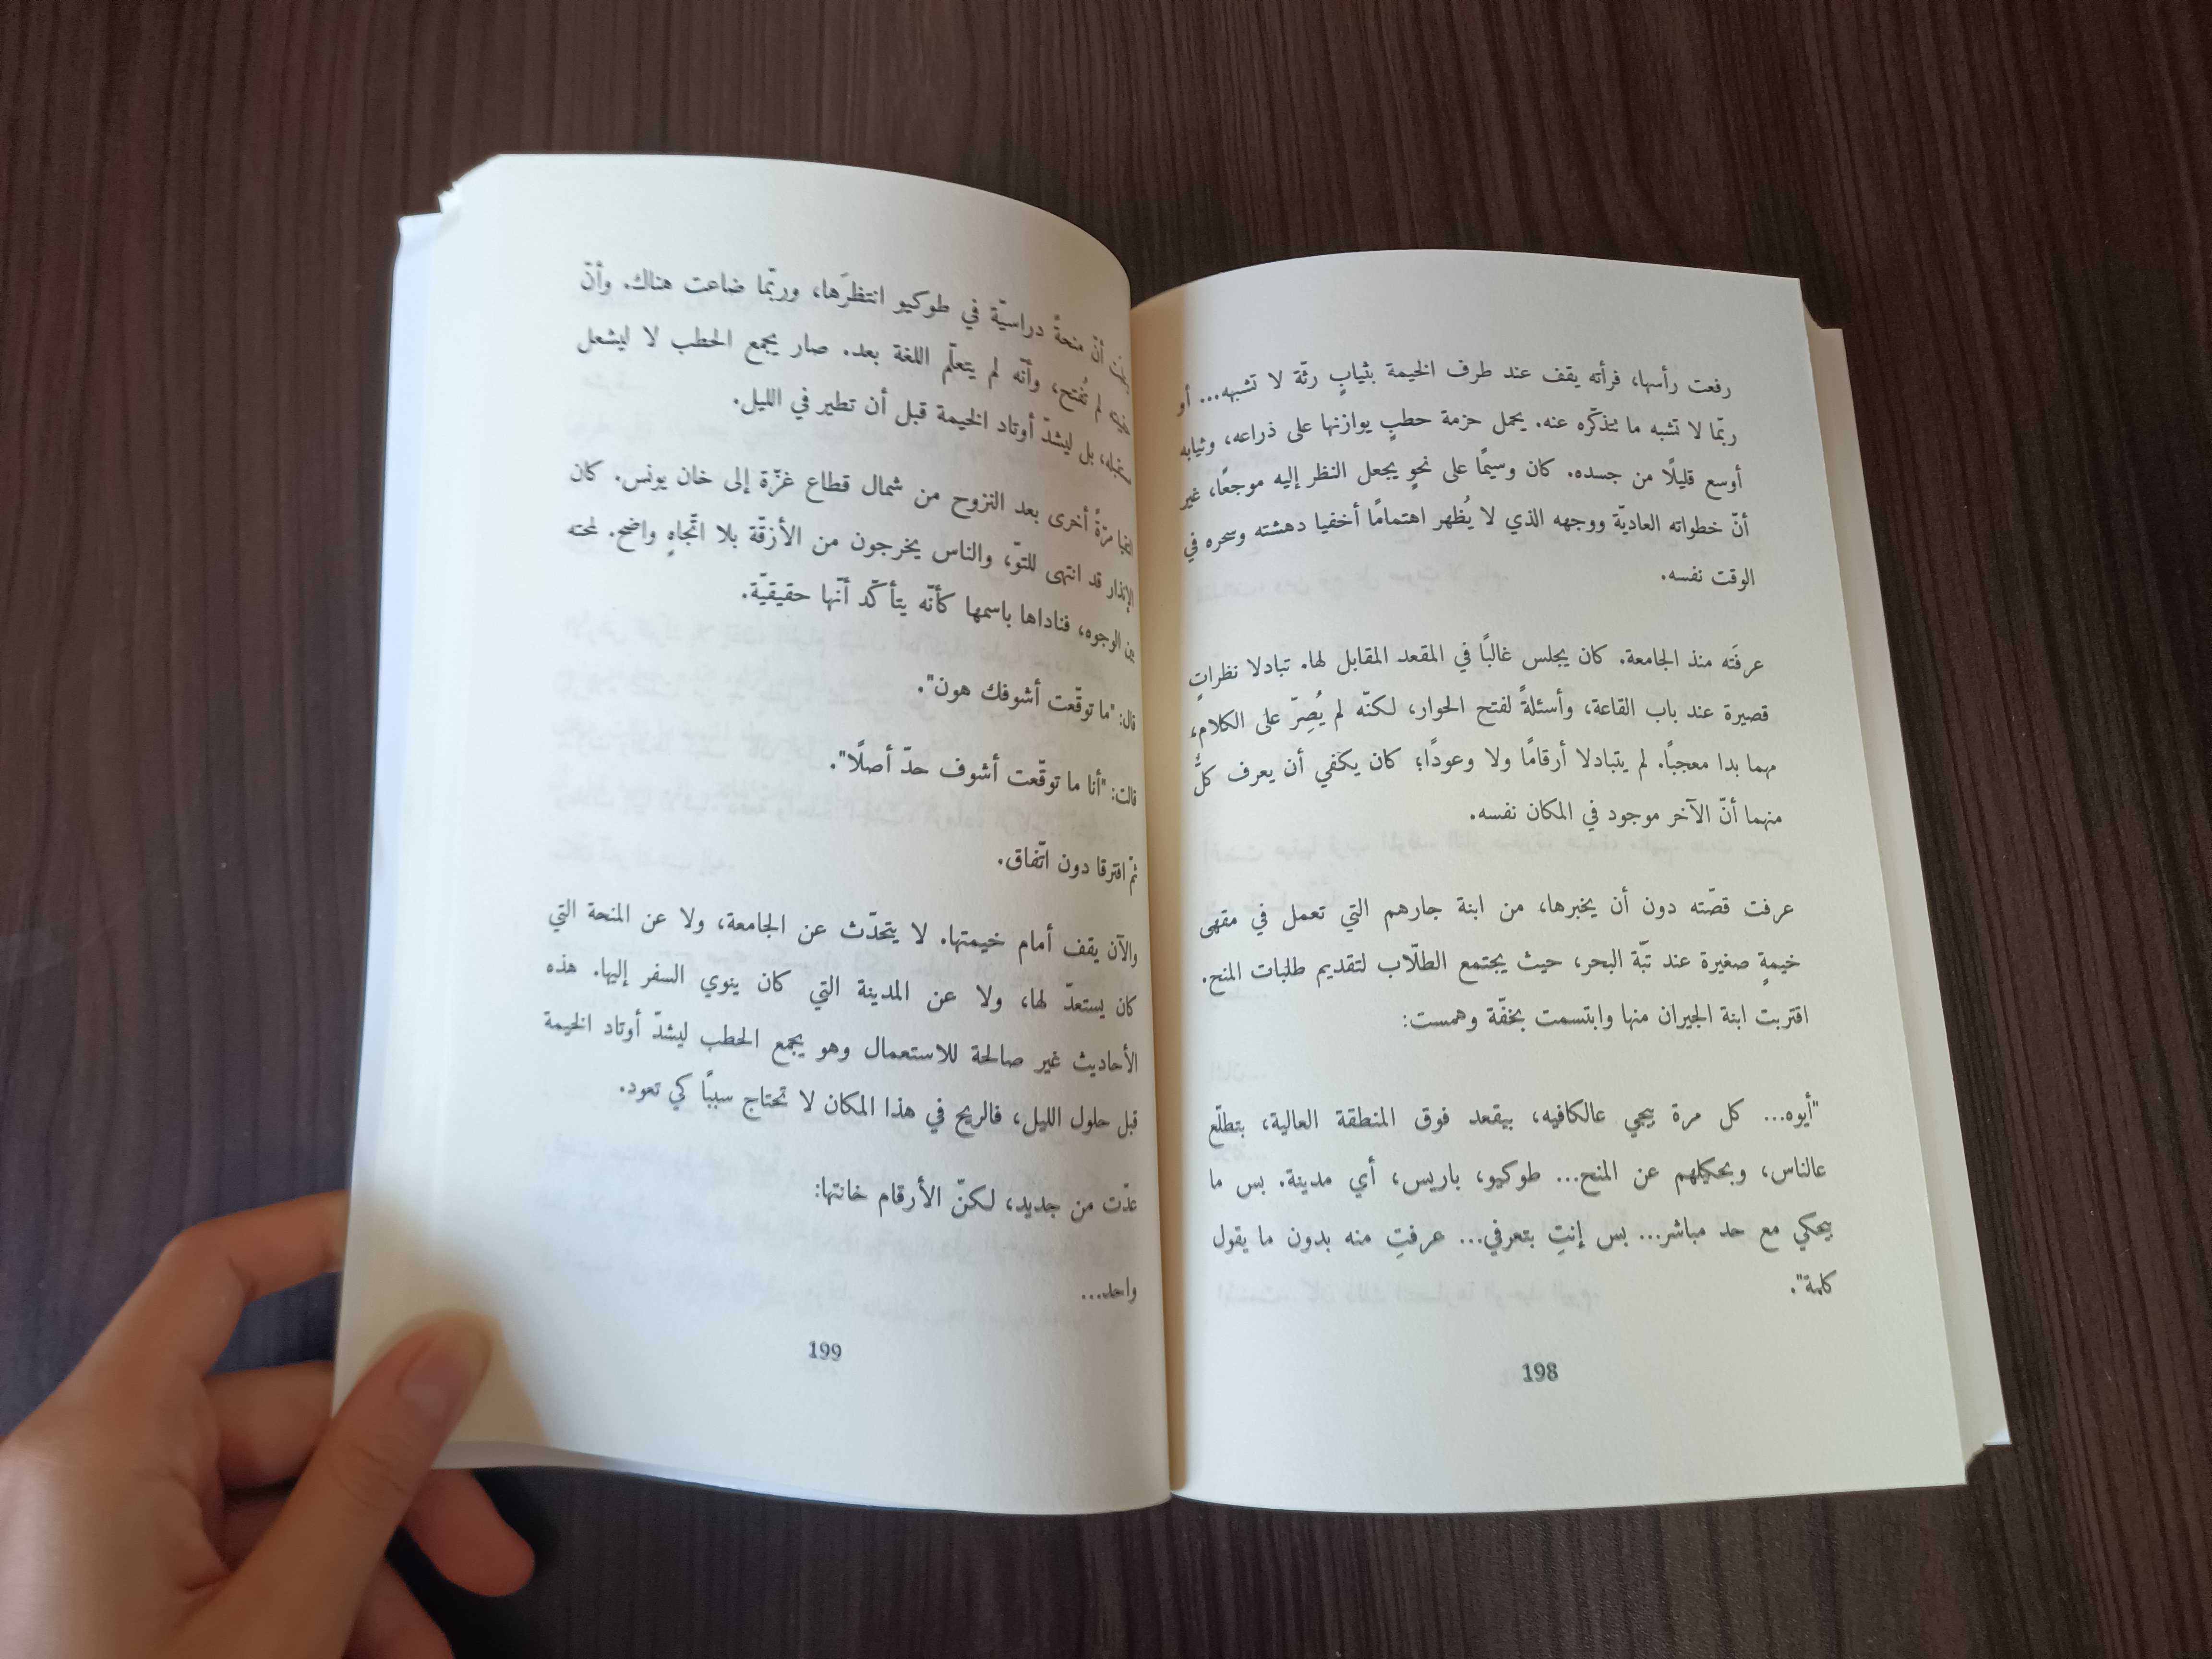 رفعت رأسها، فرأته يقف عند طرف الخيمة بثيابٍ رثّة لا تشبهه... أو
ربّما لا تشبه ما تتذكّره عنه. يحمل حزمة حطبٍ يوازنها على ذراعه، وثيابه
أوسع قليلًا من جسده. كان وسيمًا على نحوٍ يجعل النظر إليه موجعًا، غير
أنّ خطواته العاديّة ووجهه الذي لا يُظهر اهتمامًا أخفيا دهشته وسحره في
الوقت نفسه.
عرفَته منذ الجامعة. كان يجلس غالبًا في المقعد المقابل لها. تبادلا نظراتٍ
قصيرة عند باب القاعة، وأسئلةً لفتح الحوار، لكنّه لم يُصِرّ على الكلام،
مهما بدا معجبًا. لم يتبادلا أرقامًا ولا وعودًا؛ كان يكفي أن يعرف كلٌّ
منهما أنّ الآخر موجود في المكان نفسه.
عرفت قصّته دون أن يخبرها، من ابنة جارهم التي تعمل في مقهى
خيمةٍ صغيرة عند تبّة البحر، حيث يجتمع الطلّاب لتقديم طلبات المنح.
اقتربت ابنة الجيران منها وابتسمت بخفّة وهمست:
"أيوه... كل مرة بيجي عالكافيه، بيقعد فوق المنطقة العالية، بتطلّع
عالناس، وبحكيلهم عن المنح... طوكيو، باريس، أي مدينة. بس ما
بيحكي مع حد مباشر... بس إنتِ بتعرفي... عرفتِ منه بدون ما يقول
كلمة".
198
أنّ منحةً دراسيّة في طوكيو انتظرَها، وربّما ضاعت هناك. وأنّ
لم تُفتح، وأنّه لم يتعلّم اللغة بعد. صار يجمع الحطب لا ليشعل
بل ليشدّ أوتاد الخيمة قبل أن تطير في الليل.
مرّةً أخرى بعد النزوح من شمال قطاع غزّة إلى خان يونس. كان
الإنذار قد انتهى للتوّ، والناس يخرجون من الأزقّة بلا اتّجاهٍ واضح. لمحته
بين الوجوه، فناداها باسمها كأنّه يتأكّد أنّها حقيقيّة.
قال: "ما توقّعت أشوفك هون".
قالت: "أنا ما توقّعت أشوف حدّ أصلًا".
ثمّ افترقا دون اتّفاق.
والآن يقف أمام خيمتها. لا يتحدّث عن الجامعة، ولا عن المنحة التي
كان يستعدّ لها، ولا عن المدينة التي كان ينوي السفر إليها. هذه
الأحاديث غير صالحة للاستعمال وهو يجمع الحطب ليشدّ أوتاد الخيمة
قبل حلول الليل، فالريح في هذا المكان لا تحتاج سببًا كي تعود.
عدّت من جديد، لكنّ الأرقام خانتها:
واحد...
199